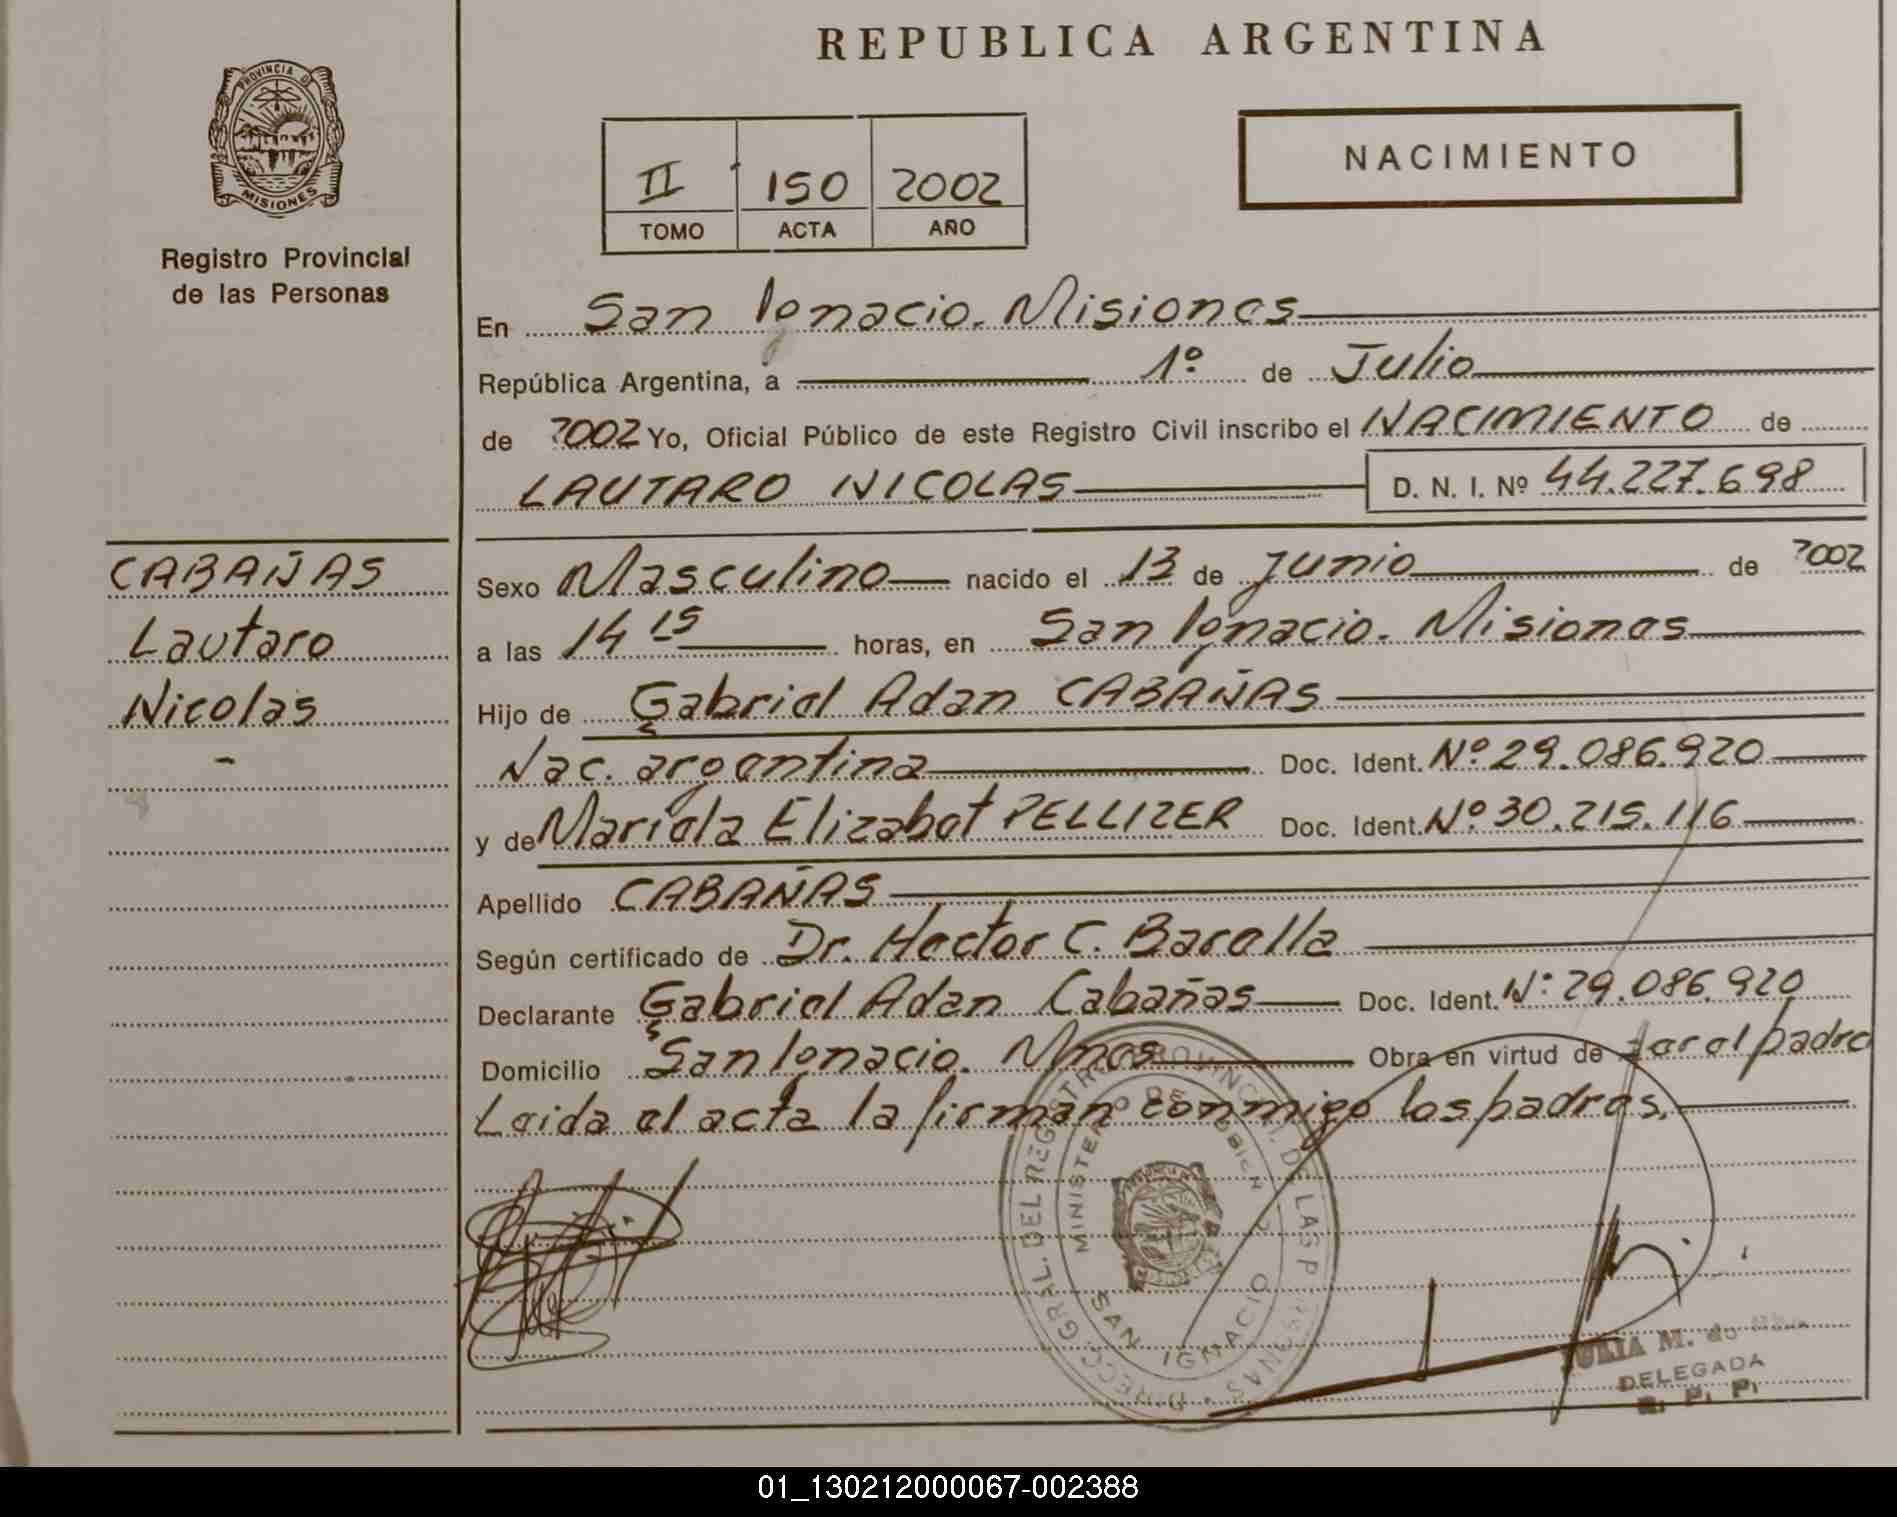 REPUBLICA ARGENTINA
PROVINCIA DE
MISIONES
Registro Provincial
de las Personas
II 150 2002
TOMO ACTA AÑO
NACIMIENTO
En San Ignacio. Misiones
República Argentina, a 1º de Julio
de 2002 Yo, Oficial Público de este Registro Civil inscribo el NACIMIENTO de
LAUTARO NICOLAS D. N. I. Nº 44.227.698
CABAÑAS
Lautaro
Nicolas
Sexo Masculino nacido el 13 de Junio de 2002
a las 14 15 horas, en San Ignacio. Misiones
Hijo de Gabriel Adan CABAÑAS
Nac. argentina Doc. Ident. Nº 29.086.920
y de Mariela Elizabet PELLIZER Doc. Ident. Nº 30.215.116
Apellido CABAÑAS
Según certificado de Dr. Hector C. Barella
Declarante Gabriel Adan Cabañas Doc. Ident. Nº 29.086.920
Domicilio San Ignacio. Mnes Obra en virtud de ser el padre
Leida el acta la firman conmigo los padres.
DIRECC. GRAL. DEL REGISTRO PROVINCIAL DE LAS PERSONAS
MINISTERIO DE
SAN IGNACIO
M. de
DELEGADA
R. P. P.
01_130212000067-002388